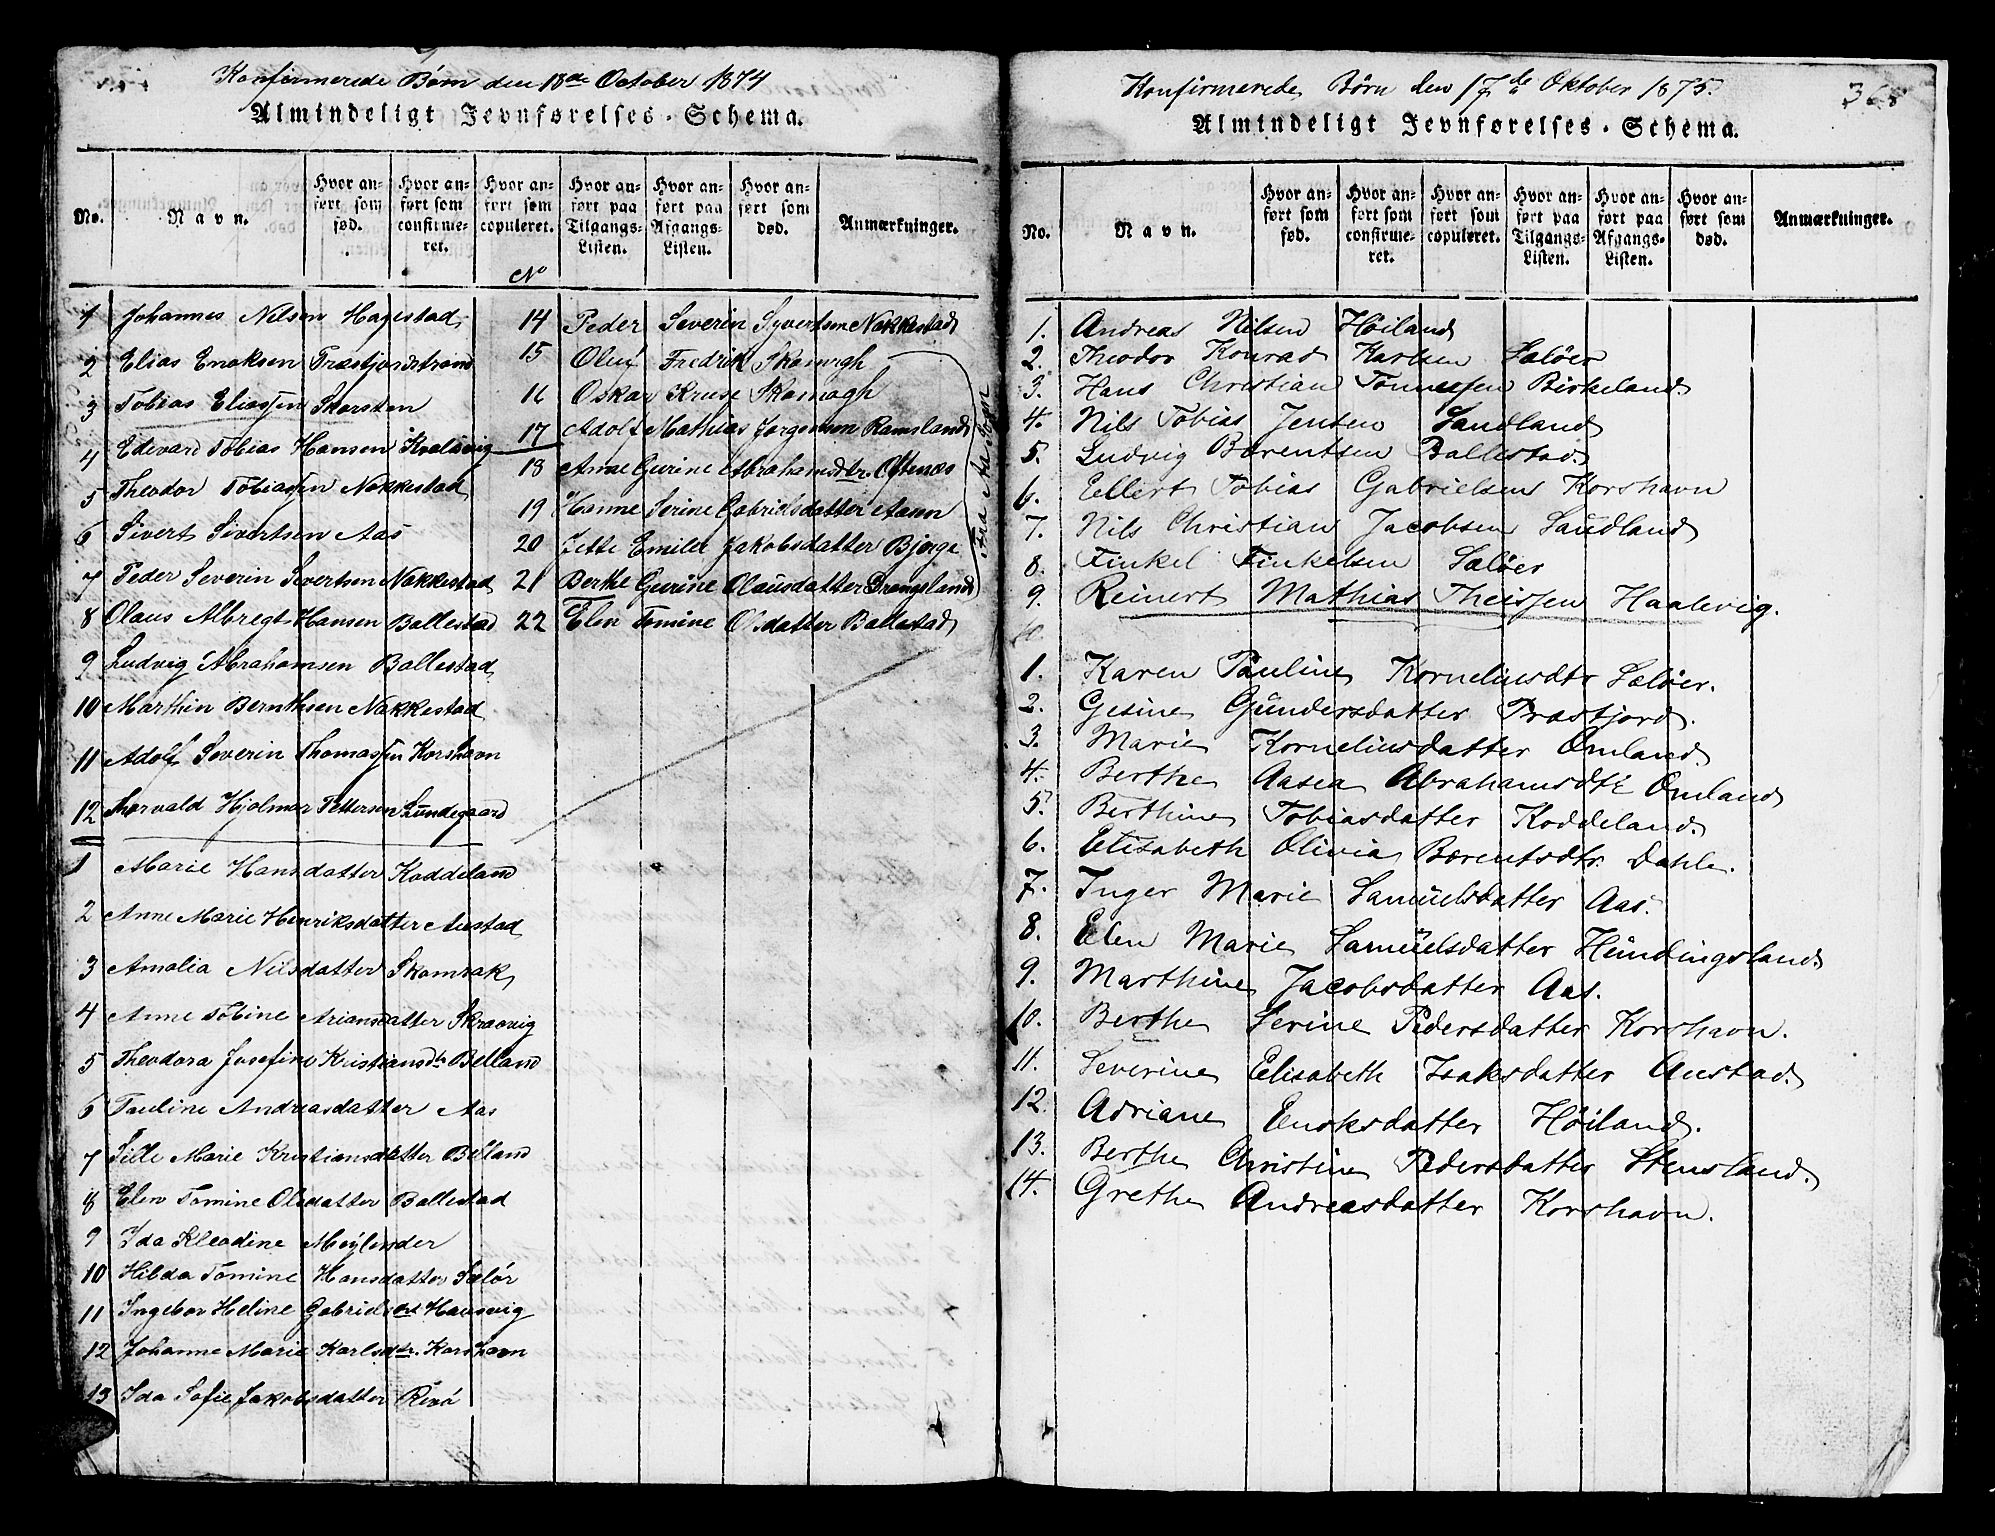 Konfirmerede Børn den 18de October 1874
Almindeligt Jevnførelses-Schema.
No.
Navn.
Hvor anført som fød.
Hvor anført som confirmeret.
Hvor anført som copuleret.
Hvor anført paa Tilgangs-Listen.
Hvor anført paa Afgangs-Listen.
Hvor anført som død.
Anmærkninger.
1 Johannes Nilsen Hagestad
2 Elias Enoksen Præstjordstrand
3 Tobias Eliassen Skorsten
4 Edevard Tobias Hansen Kvalsvig
5 Theodor Tobiassen Nakkestad
6 Sivert Sivertsen Aas
7 Peder Severin Sivertsen Nakkestad
8 Olaus Albregt Hansen Ballestad
9 Ludvig Abrahamsen Ballestad
10 Marthin Bernthsen Nakkestad
11 Adolf Severin Thomassen Korshavn
12 Thorvald Hjalmar Pettersen Lundegaard
1 Marie Hansdatter Koddeland
2 Anne Marie Henriksdatter Austad
3 Amalia Nilsdatter Skamrak
4 Anne Tobine Ariansdatter Skraavig
5 Theodora Josefine Kristiansdtr Belland
6 Pauline Andreasdatter Aas
7 Sille Marie Kristiansdatter Belland
8 Elen Tomine Olsdatter Ballestad
9 Ida Kleodine Meylender
10 Hilda Tomine Hansdatter Sælør
11 Ingebor Heline Gabrielsdt Hausvig
12 Johanne Marie Karlsdtr. Korshavn
13 Ida Sofie Jakobsdatter Revø
No
14 Peder Severin Syvertsen Nakkestad
15 Oluf Fredrik Skomrgh
16 Oskar Kruse Skomagh
17 Adolf Mathias Jørgensen Ramsland
18 Anne Gurine Abrahamsdtr. Oftenæs
19 Hanne Serine Gabrielsdatter Aavn
20 Jette Emilie Jakobsdatter Bjerge
21 Berthe Gurine Olausdatter Brangsland
22 Elen Tomine Olsdatter Ballestad
Fra Aa Sogn
Konfirmerede Børn den 17de Oktober 1875.
368
Almindeligt Jevnførelses-Schema.
No.
Navn.
Hvor anført som fød.
Hvor anført som confirmeret.
Hvor anført som copuleret.
Hvor anført paa Tilgangs-Listen.
Hvor anført paa Afgangs-Listen.
Hvor anført som død.
Anmærkninger.
1. Andreas Nilsen Høiland
2. Theodor Konrad Karlsen Sæløer
3. Hans Christian Tønnessen Birkeland.
4. Nils Tobias Jensen Sandland
5. Ludvig Bærentsen Ballestad.
6. Ellert Tobias Gabrielsen Korshavn
7. Nils Christian Jacobsen Sandland
8. Finkel Finkelsen Sæløer
9. Reinert Mathias Theissen Haalevig.
10
1. Karen Pauline Korneliusdtr Sæløer.
2. Gesine Gundersdatter Præstjord.
3. Marie Korneliusdatter Omland.
4. Berthe Aasea Abrahamsdtr Omland
5. Berthine Tobiasdatter Koddeland.
6. Elisabeth Olivia Bærentsdtr. Dahle.
7. Inger Marie Samuelsdatter Aas.
8. Elen Marie Samuelsdatter Hundingsland.
9. Marthine Jacobsdatter Aas.
10. Berthe Serine Pedersdatter Korshavn.
11. Severine Elisabeth Isaksdatter Austad.
12. Adriane Enoksdatter Høiland.
13. Berthe Christine Pedersdatter Stensland.
14. Grethe Andreasdatter Korshavn.